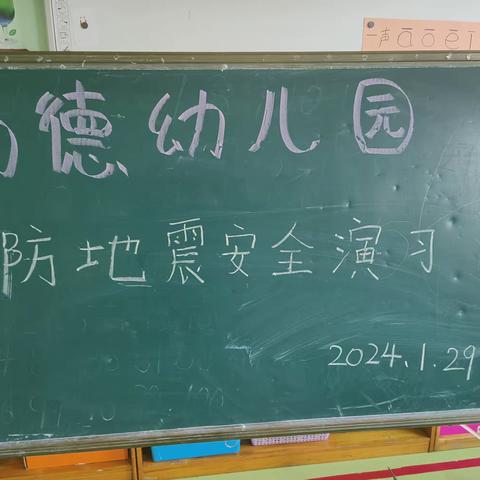 一声 ā ō ē ī
德幼儿园
防地震安全演习
2024.1.29